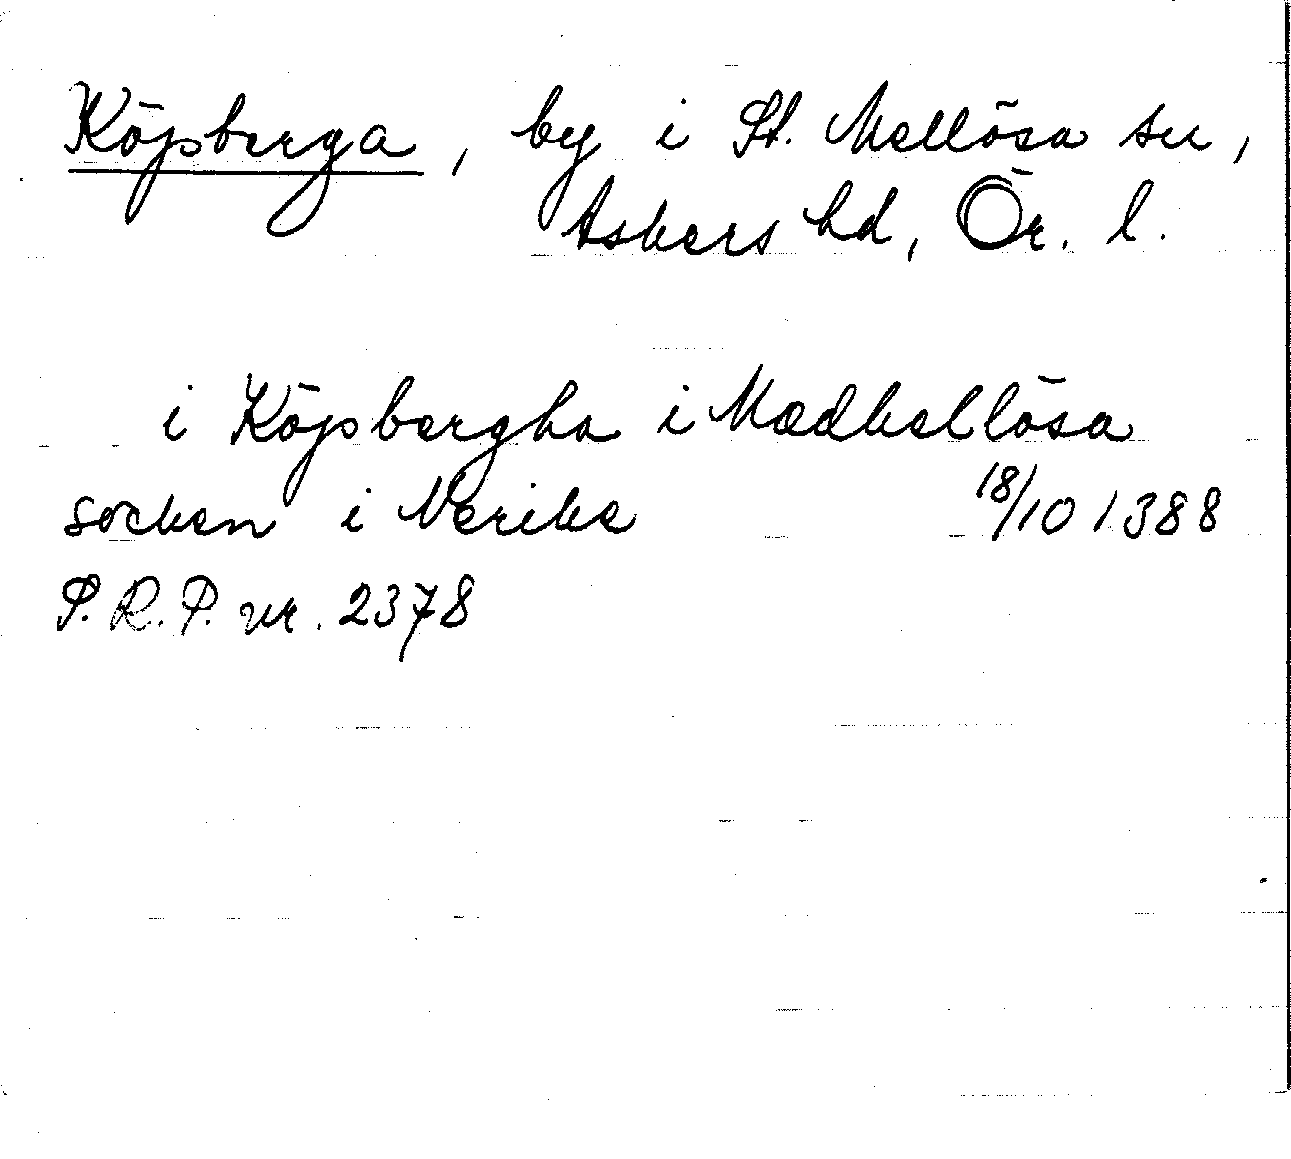 Köpberga, by i St. Mellösa sn,
Askers hd, Ör. l.
i Köpbergha i Mædhellösa
socken i Nerike 18/10 1388
P.R.P. nr. 2378